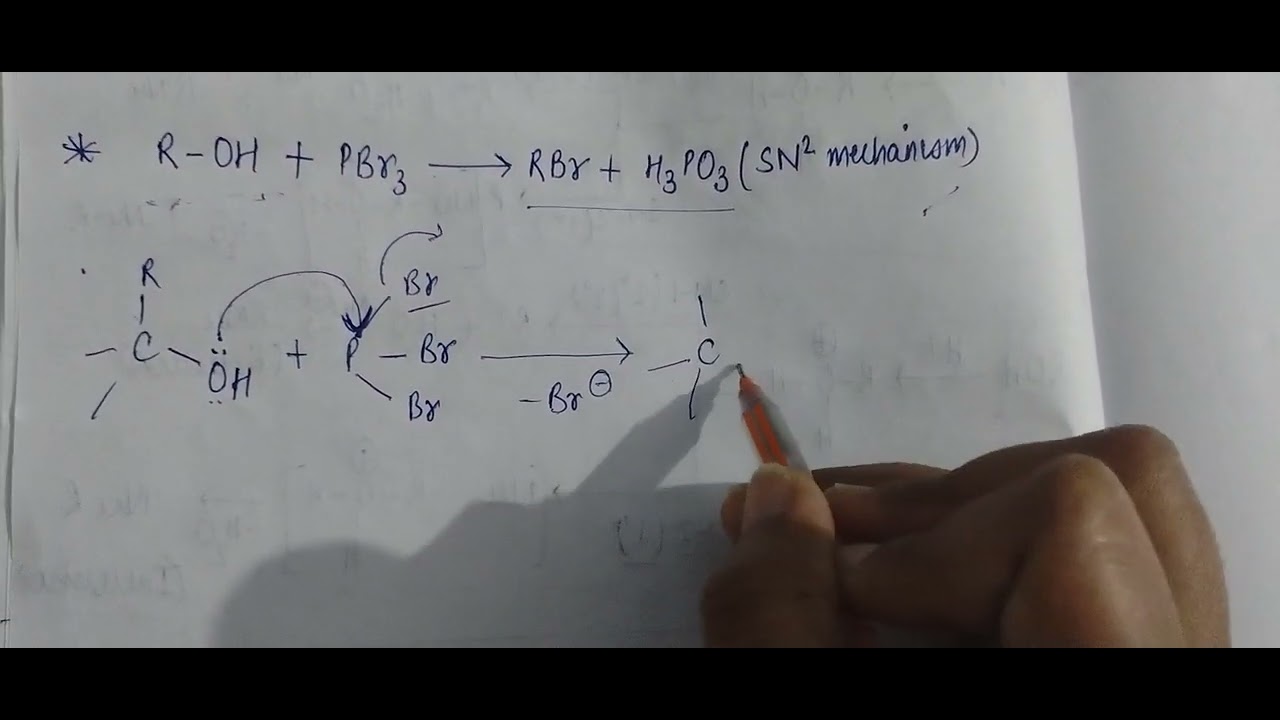 * R-OH + PBr₃ ⟶ RBr + H₃PO₃ (SN² mechanism)
R Br
C ÖH + P Br ⟶ C
Br -Br⊖